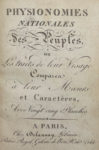 PHYSIONOMIES
NATIONALES
des Peuples,
ou
Les Traits de leur Visage
Comparés
à leur Mœurs
et Caractères,
Avec Vingt cinq Planches
A PARIS,
Chez Delaunay, Libraire
Palais Royal Galerie de Bois, N.º 243